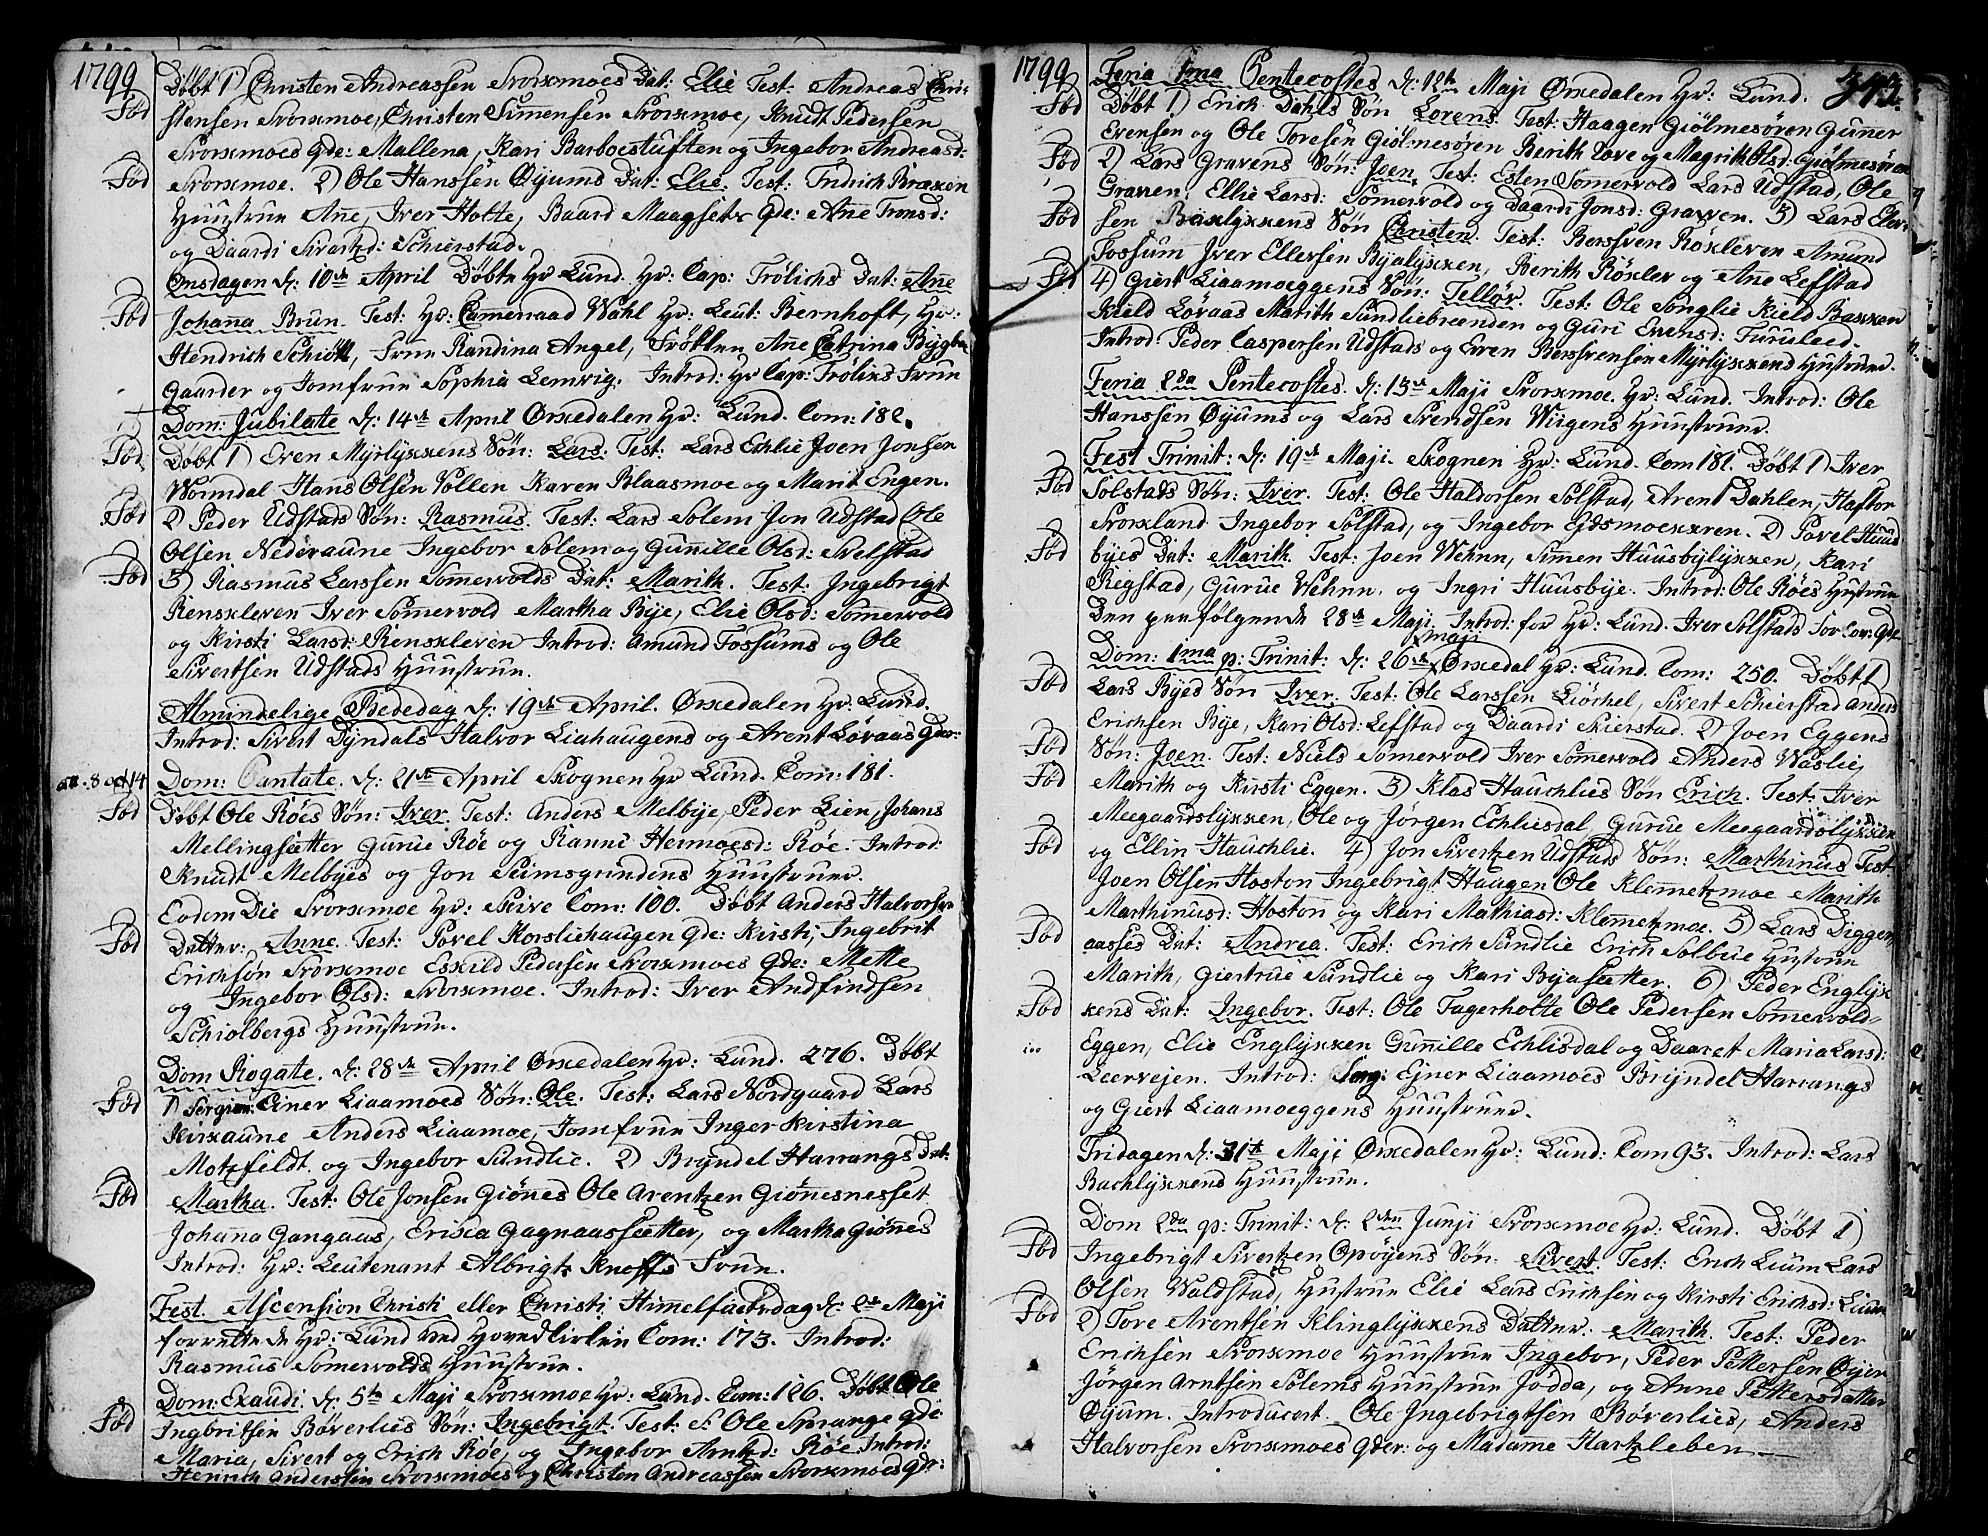 1799
Døbt 1) Christen Andreassen Svorkmoes Dat: Elie Test: Andreas Chri-
Fød
stensen Svorkmoe, Christen Simensen Svorkmoe, Knudt Pedersen
Svorkmoes Qde: Mallena, Kari Barboestuften og Ingebor Andreasd:
Fød
Svorkmoe. 2) Ole Hanssen Øyums Dat: Elie. Test: Indrich Braken
Huustrue Ane, Iver Holte, Baard Maagset Qde: Ane Tronsd:
og Daardi Sivertzd: Schierstad.
Onsdagen d: 10de April Døbte Hr Lund. Hr: Cap: Frölichs Dat: Ane
Fød
Johanna Brun. Test: Hr: Cameraad Wahl Hr: Leut: Bernhoft, Hr:
Hendrich Schiøtt, Frue Randina Angel, Frökken Ane Catrina Bygba
Gaarder og Jomfrue Sophia Lemvig. Introd: Hr Cap: Frölixs Frue
Dom: Jubilate d: 14de April Ørkedalen Hr: Lund. Com: 182.
Fød
Døbt 1) Even Myrlykkens Søn: Lars. Test: Lars Echlie Joen Jonsen
Wormdal Hans Olsen Vollen Karen Blaasmoe og Marit Engen.
Fød
2) Peder Udstads Søn: Rasmus. Test: Lars Solem Jon Udstad Ole
Olsen Nederaune Ingebor Solem og Gunille Olsd: Svelstad
Fød
3) Rasmus Larssen Somervolds Dat: Marith. Test: Ingebrigt
Renskleven Iver Somervold Martha Bye, Elie Olsd: Somervold
og Kirsti Larsd: Renskleven Introd: Amund Fossums og Ole
Sivertsen Udstads Huustrue.
Almindelige Bededag d: 19de April. Ørkedalen Hr: Lund.
Introd: Sivert Dyndals Halvor Liahaugens og Arent Løvaas Qder:
Dom: Cantate. d: 21de April Skognen Hr Lund. Com: 181.
Fød
Døbt Ole Röes Søn: Iver. Test: Anders Melbye, Peder Lien, Johans
Mellingsætter Gurue Röe og Ranni Hermoesd: Röe. Introd:
Knudt Melbyes og Jon Sumsgrindens Huustruer.
Eodem Die Svorkmoe Hr: Steive Com: 100. Døbt Anders Halvorsens
Fød
Datter: Anne. Test: Povel Korsliehaugen Qde: Kirsti, Ingebrit
Erichsøn Svorkmoe Eskild Pedersen Svorkmoes Qde: Mette
og Ingebor Olsd: Svorkmoe. Introd: Iver Andfindsen
Schiolbergs Huustrue.
Dom Rogate. d: 28de April Ørkedalen Hr: Lund. 276. Døbt
Fød
1) Sergian: Einer Liaamoes Søn: Ole. Test: Lars Nordgaard Lars
Kirkaune Anders Liaamoe, Jomfrue Inger Kirstina
Motzfeldt. og Ingebor Sundlie. 2) Bryndel Harrangs Dat:
Fød
Martha. Test: Ole Jonsen Giönes Ole Arentzen Giönesnesset
Johanna Gangaas, Erika Gagnaassætter, og Martha Giönes
Introd: Hr: Leutenant Albrigt Knoffs Frue.
Fest. Ascension Christi eller Christi Himmelfaertsdag d: 2de Maji
forrettede Hr: Lund ved Hovedkirken Com: 173. Introd:
Rasmus Somervolds Huustrue.
Dom: Exaudi. d: 5te Maji Svorkmoe Hr: Lund. Com: 126. Døbt Ole
Fød
Ingbritsen Bøverlies Søn: Ingebrigt. Test: S: Ole Sprange Qde
Maria, Sivert og Erich Röe, og Ingebor Arntzd: Röe Introd:
Henrich Andersen Svorkmoes og Christen Andreassen Svorkmoes Qdr:
1799
Feria 1ma Pentecostes d: 12te Maji Ørkedalen Hr: Lund.
343.
Fød
Døbt 1) Erich Dahls Søn Lorens. Test: Haagen Giölmesören Guner
Evensen og Ole Toresen Giölmesören Berith Love og Magrith Olsd: Giölmesören
Fød
2) Lars Gravens Søn: Joen. Test: Esten Somervold Lars Udstad, Ole
Graven, Ellie Larsd: Somervold og Daardi Jonsd: Graven. 3) Lars Eler-
Fød
sen Baklykkens Søn Christen. Test: Bersven Rökleven Amund
Fossum Iver Ellersen Byalykken, Berith Rökler og Ane Lefstad
Fød
4) Giert Liaamoeggens Søn: Tellör. Test: Ole Songlie Kield Bakken
Kield Lövaas Marith Sundliebrænden og Guri Evensd: Furuleed.
Introd: Peder Caspersen Udstads og Even Bersvensen Myrlykkens Huustruer.
Feria 2da Pentecostes. d: 13de Maji Svorkmoe. Hr: Lund. Introd: Ole
Hanssen Øyums og Lars Svendsen Wigens Huustruer.
Fest Trinit: d: 19de Maji. Skognen Hr: Lund. Com 181. Døbt 1) Iver
Fød
Solstads Søn: Iver. Test: Ole Haldorsen Solstad, Arent Dahlen, Haftor
Svorkland Ingebor Solstad, og Ingebor Eidsmoekkren. 2) Povel Huus
Fød
byes Dat: Marith. Test: Joen Wehn, Simen Huusbylykken, Kari
Regstad, Gurue Wehn. og Ingri Huusbye. Introd: Ole Röes Hustrue
Den paafølgende 28de Maji. Introd: for Hr: Lund. Iver Solstads
Dom: 1ma p: Trinit: d: 26de Maji Ørkedal Hr: Lund. Com: 250. Døbt 1)
Fød
Lars Byes Søn Iver. Test: Ole Larssen Liöchel, Sivert Schierstad Anders
Erichsen Bye, Kari Olsd: Lefstad og Daardi Skierstad. 2) Joen Eggens
Fød
Søn: Joen. Test: Niels Somervold Iver Somervold Anders Waslie,
Fød
Marith og Kirsti Eggen. 3) Klas Hauchlies Søn Erich. Test: Iver
Meegaardslykken, Ole og Jörgen Echliesdal, Gurue Meegaardslykken
Fød
og Ellin Hauchlie. 4) Jon Sivertzen Udstads Søn: Marthinus Test:
Joen Olsen Hoston Ingebrigt Haugen Ole Klemetzmoe Marith
Marthinusd: Hoston og Kari Mathiasd: Klemetzmoe. 5) Lars Diggen-
Fød
aasses Dat: Andrea. Test: Erich Sundlie Erich Solbue Hustrue
Marith, Giertrue Sundlie og Kari Byasætter. 6) Peder Englyk
Fød
kens Dat: Ingebor. Test: Ole Fagerholte Ole Pedersen Somervold-
Eggen, Elie Englykken Gunille Echlisdal og Daaret Maria Larsd:
Leervejen. Introd: Serg: Ejner Liaamoes Bryndel Harrangs
og Giert Liaamoeggens Huustruer.
Fridagen d: 31te Maji Ørkedalen Hr: Lund: Com 93. Introd: Lars
Bachlykkens Huustrue.
Dom 2da p: Trinit: d: 2den Junji Svorkmoe Hr: Lund. Døbt 1)
Fød
Ingebrigt Sivertzen Opöyens Søn: Sivert. Test: Erich Lium Lars
Olsen Waldstad, Hustrue Elie Lars Erichsen og Kirsti Erichsd: Lium
Fød
2) Tore Arentsen Klinglykkens Datter: Marith. Test: Peder
Erichsen Svorkmoe Huustrue Ingebor, Peder Pettersen Öyen
Jörgen Arntsen Solems Huustrue Jödda, og Anne Pettersdatter
Öyum. Introducert. Ole Ingebrigtsen Bøverlies, Anders
Halvorsen Svorkmoes Qder: og Madame Hartzleben.